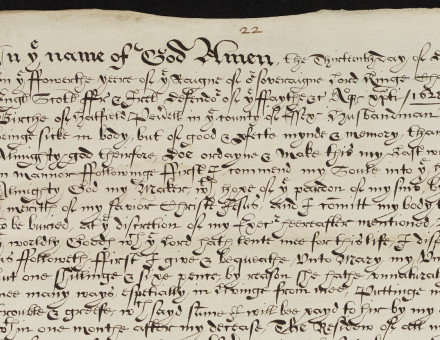 22
In yͤ name of God Amen, the Thirteenth day of
in yͤ ffowerthe yeare of yͤ Raigne of oʳ soveraigne Lord Kinge
Scotl: ffr: & Irel: defendoʳ of yͤ ffaythe &c: 
of Hatfeild Peverell in yͤ county of Essex Husbandman
beinge sicke in body, but of good & pfecte mynde & memory, than
Almighty god therefore, doe ordayne & make this my Last
in mannor ffollowinge ffirst I commend my Soule into yͤ
Almighty God my Maker wᵗʰ hope of yͤ pardon of my sins
meritts of my savior Christe Jesus, and I comitt my body t
to be buried, at yͤ discretion of my Execʳ hereafter mentioned
yͤ worldly Goods wᶜʰ yͤ Lord hath lente mee for this life, I dis
as ffolloweth ffirst I give & bequeathe Unto Mary my
but one shillinge & sixe pence, by reason she hathe unnatural
mee many ways, espetially in livinge from mee, Puttinge m
trouble & greefe, wᶜʰ sayd sume I will bee payd to hir by my
in one monthe after my decease, The Residew of all m